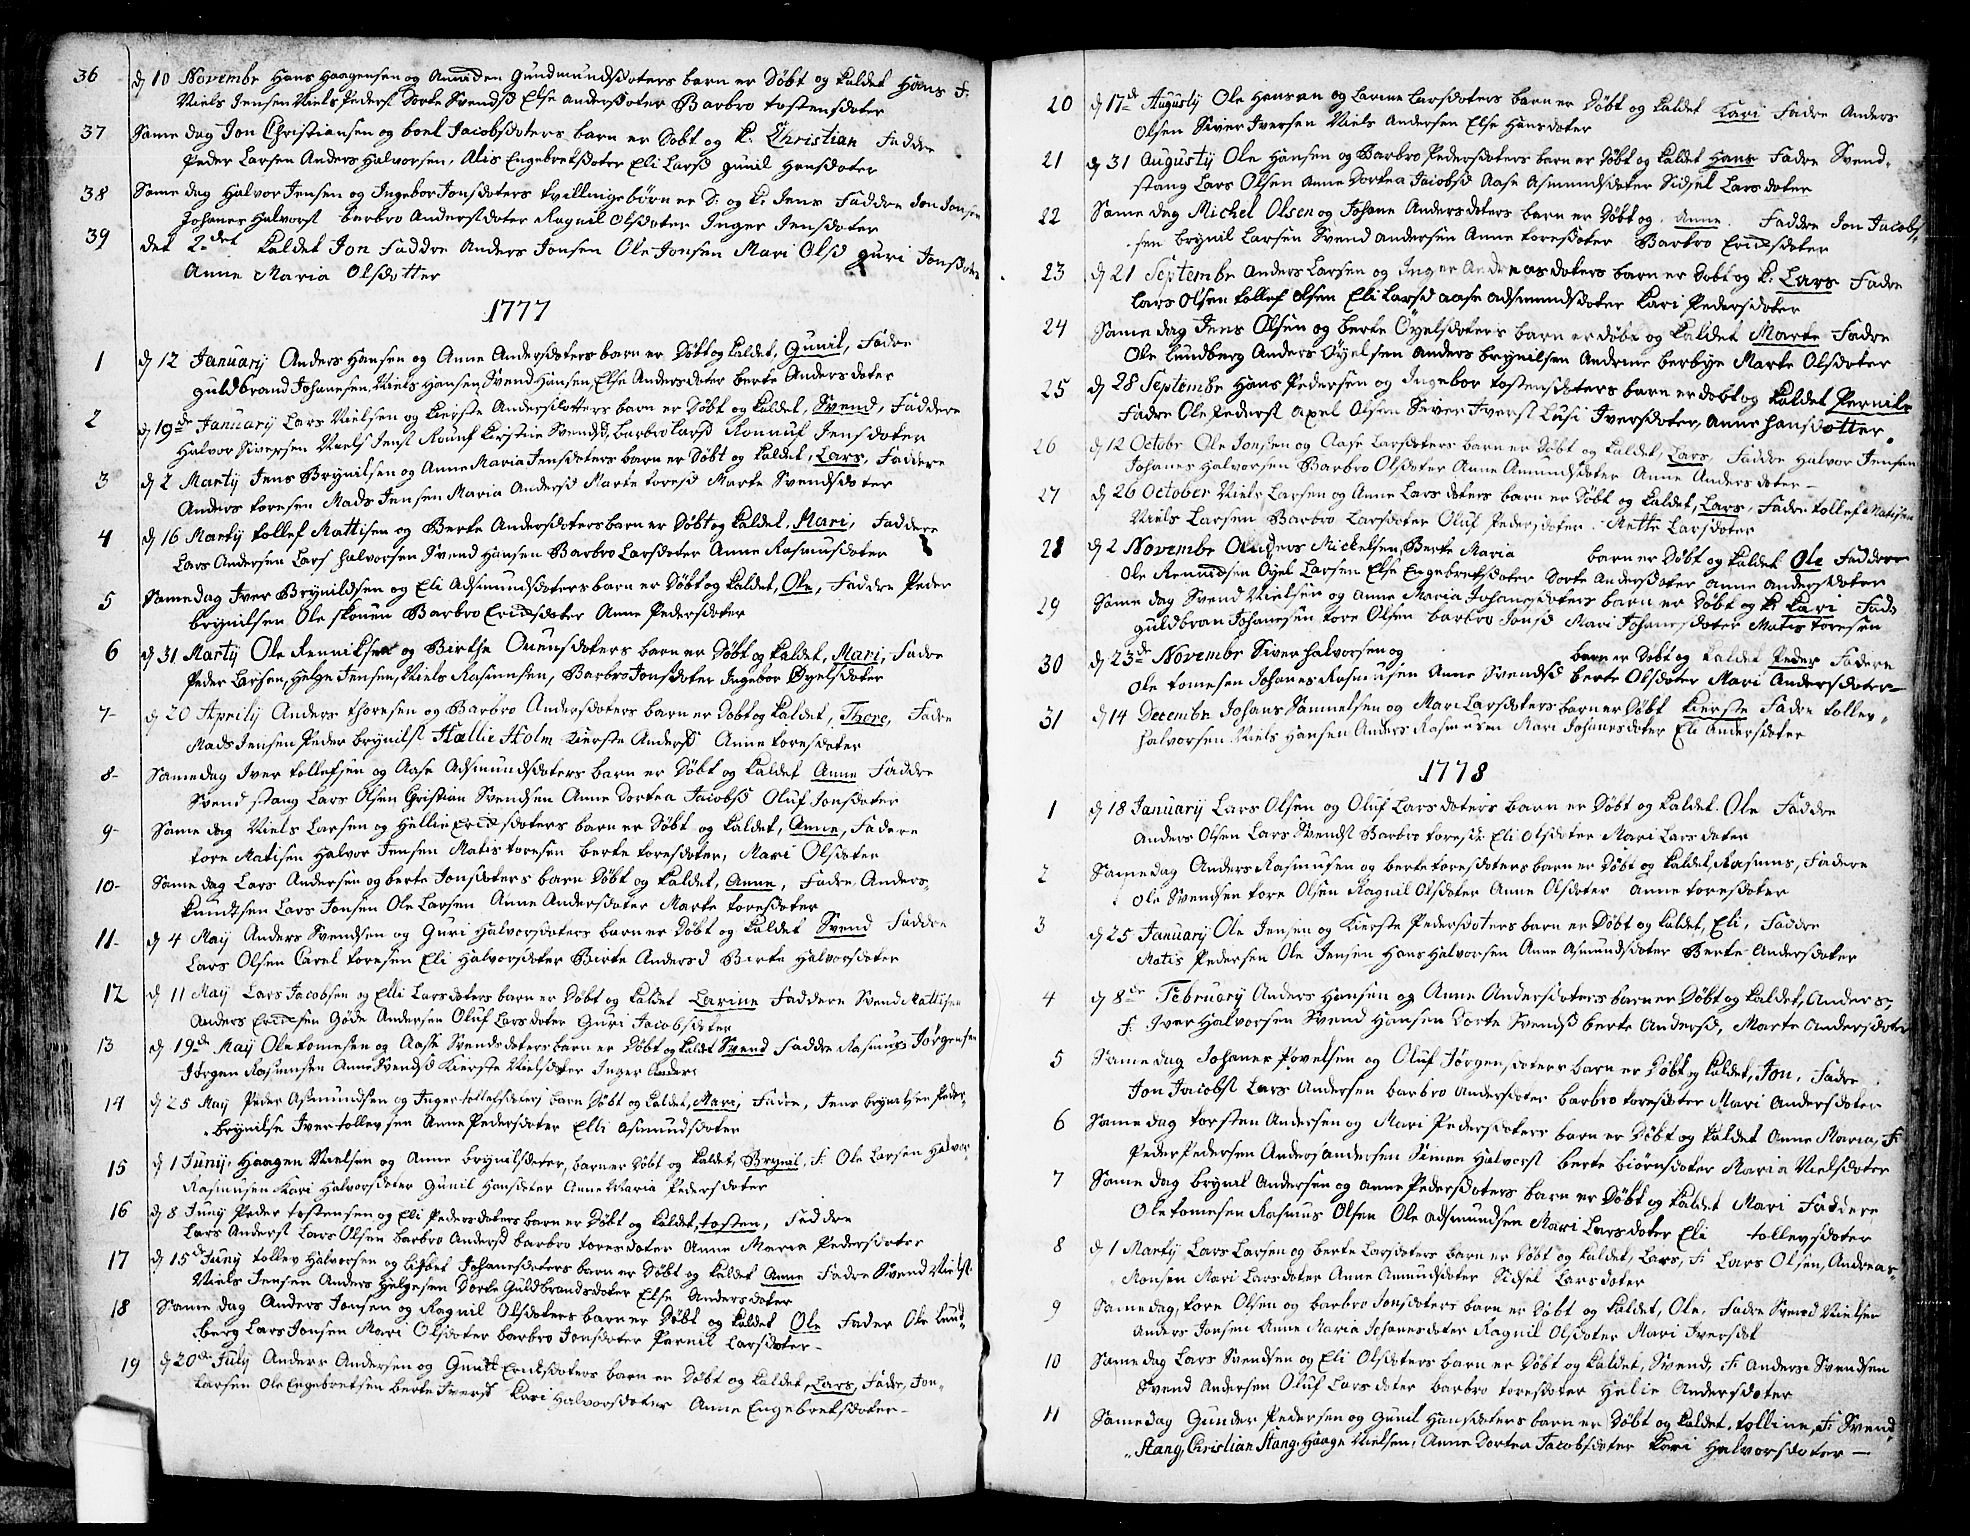 36 d 10 Novembr Hans Haagensen og Anniken Gundmundsdoters barn er Døbt og kaldet Hans F:
Niels Jensen Niels Peders Dorte Svendsd Else Andersdoter Barbro tostensdoter
37 Same dag Jon Christiansen og boel Jacobsdoters barn er Døbt og k. Christian Faddre
Peder Larsen Anders Halvorsen, Alis Engebretsdoter Eli Larsd gunil Hansdoter
38 Same dag Halvor Jensen og Ingebor Jonsdoters tvillingebørn er D: og k: Jens Faddre Jon Jonsen
Johanes Halvors barbro Andersdoter Ragnil Olsdoter Inger Jensdoter
39 det 2det kaldet Jon Faddre Anders Jonsen Ole Jonsen Mari Olsd guri Jonsdoter
Anne Maria Olsdotter
1777
1 d 12 January Anders Hansen og Anne Andersdoters barn er Døbt og kaldet, Gunil, Fadre
guldbrand Johanesen, Niels Hansen, Svend Hansen, Else Andersdoter berte Andersdoter
2 d 19de January Lars Nielsen og kierste Andersdotters barn er Døbt og kaldet, Svend, Faddere
Halvor Siversen Niels Jens Kirstie Svendsd, barbro Larsd Jensdoter
3 d 2 Marty Jens Brynilsen og Anne Maria Jensdoters barn er Døbt og kaldet, Lars, Faddere
Anders toresen Mads Jensen Maria Andersd Marte toresd Marte Svendsdoter
4 d 16 Marty tollef Mattisen og Berte Andersdoters barn er Døbt og kaldet, Mari, Faddere
Lars Andersen Lars Halvorsen Svend Hansen Barbro Larsdoter Anne Rasmusdoter
5 Same dag Iver Brynildsen og Eli Asmundsdoters barn er Døbt og kaldet, Ole, Faddre Peder
brynilsen Ole skouen Barbro Ericksdoter Anne Pedersdoter
6 d 31 Marty Ole Renniksen og Birthe Ouensdoters barn er Døbt og kaldet, Mari, Fadre
Peder Larsen, Helge Jensen, Niels Rasmusen, Barbro Jonsdoter Ingebor Øyelsdoter
7- d 20 Aprily Anders thoresen og Barbro Andersdoters barn er Dobt og kaldet, Thore, Fadre
Mads Jensen Peder brynils Hællie Holm kierste Andersd Anne toresdoter
8- Same dag Iver tollefsen og Aase Asmundsdoters barn er Døbt og kaldet Anne Faddre
Svend stang Lars Olsen Cristian Svendsen Anne Dortea Jacobsd Oluf Jonsdoter
9- Same dag Niels Larsen og Hellie Ericksdoters barn er Døbt og kaldet, Anne, Fadere
tore Matisen Halvor Jensen Matis toresen berte toresdoter, Mari Olsdoter
10- Same dag Lars Andersen og berte Jonsdoters barn Døbt og kaldet, Anne, Fadre, Anders
knudtsen Lars Jonsen Ole Larsen Anne Andersdoter Marte toresdoter
11- d 4 May Anders Svendsen og Guri Halvorsdoters barn er Døbt og kaldet Svend Faddre
Lars Olsen Carel toresen Eli Halvorsdoter Birte Andersd Birte Halvorsdoter
12 d 11 May Lars Jacobsen og Elli Larsdoters barn er Døbt og kaldet Larine Faddere Svend Mattisen
Anders Ericksen Gøde Andersen Oluf Larsdoter Guri Jacobsdoter
13 d 19de May Ole tomesen og Aase Svendsdoters barn er Døbt og kaldet Svend Faddre Rasmus Jørgensen
Jørgen Rasmusen Anne Svendsd Kierste Nielsdoter Inger Anders
14 d 25 May Peder Asmundsen og Inger tollefsdoters barn Døbt og kaldet, Mari, Fadre, Jens brynilsen Peder
brynilse Iver tollevsen Anne Pedersdoter Elli Asmundsdoter
15 d 1 Juny, Haagen Nielsen og Anne brynilsdoter, barn er Døbt og kaldet, Brynil, F. Ole Larsen Halvor
Rasmusen Kari Halvorsdoter Gunil Hansdoter Anne Maria Pedersdoter
16 d 8 Juny Peder tostensen og Eli Pedersdoters barn er Døbt og kaldet, tosten, Faddre
Lars Anders Lars Olsen barbro Andersd barbro toresdoter Anne Maria Pedersdoter
17 d 15de Juny tollev Halvorsen og Lisbet Johanesdoters barn er Døbt og kaldet Anne Fadre Svend Niels
Niels Jensen Anders Helgesen Dorte Guldbrandsdoter Else Andersdoter
18 Same dag Anders Jonsen og Ragnil Olsdoters barn er Døbt og kaldet Ole Fader Ole Lund-
berg Lars Jonsen Mari Olsdoter barbro Jonsdoter Parnil Larsdoter
19 d 20de July Anders Andersen og Gunil Ericksdoters barn er Døbt og kaldet, Lars, Fadre, Jon
Larsen Ole Engebretsen berte Iversd Kari Halvorsdoter Anne Engebretsdoter
20 d 17de Augusty Ole Hansen og Larine Larsdoters barn er Døbt og kaldet Kari Fadre Anders
Olsen Siver Iversen Niels Andersen Else Hansdoter
21 d 31 Augusty Ole Hansen og Barbro Pedersdoters barn er Døbt og kaldet Hans Fadre Svend
stang Lars Olsen Anne Dortea Jacobsd Aase Asmundsdoter Sidsel Larsdoter
22 Same dag Michel Olsen og Johane Andersdoters barn er Døbt og Anne Faddre Jon Jacob-
sen brynil Larsen Svend Andersen Anne toresdoter Barbro Ericksdoter
23 d 21 Septembr Anders Larsen og Inger Andreasdoters barn er Døbt og k. Lars Fadre
Lars Olsen tollef Olsen Eli Larsd Aase Asmundsdoter Kari Pedersdoter
24 Same dag Jens Olsen og berte Øyelsdoters barn er døbt og kaldet Marte Fadre
Ole Lundberg Anders Øyelsen Anders brynilsen Andrine berbye Marte Olsdoter
25 d 28 Septembr Hans Pedersen og Ingebor tostensdoters barn er døbt og kaldet Pernile
Fadre Ole Peders Axel Olsen Siver Ivers Lusi Iversdoter, Anne Hansdotter.
26 d 12 Octobr Ole Jonsen og Aase Larsdoters barn er Døbt og kaldet, Lars, Faddre Halvor Jensen
Johanes Halvorsen Barbro Olsdoter Anne Amundsdoter Anne Andersdoter
27 d 26 October Niels Larsen og Anne Larsdoters barn er Døbt og kaldet, Lars, Fadre tollef Matisen
Niels Larsen Barbro Larsdoter Oluf Pedersdoter Mette Larsdoter
28 d 2 Novembr Anders Mickelsen, Berte Maria barn er Døbt og kaldet Ole Faddere
Ole Renniksen Øyel Larsen Else Engebretsdoter Dorte Andersdoter Anne Andersdoter
29 Same dag Svend Nielsen og Anne Maria Johanesdoters barn er Døbt og k: Kari Fad.
guldbran Johanesen tore Olsen barbro Jonsd Mari Johanesdoter Matis toresen
30 d 23de Novembr Siver Halvorsen og barn er Døbt og kaldet Peder Fadere
Ole tomesen Johanes Rasmusen Anne Svendsd berte Olsdoter Mari Andersdoter
31 d 14 Decembr Johans Samuelsen og Mari Larsdoters barn er Døbt kierste Fadre tollev
Halvorsen Niels Hansen Anders Rasmusen Mari Johanesdoter Eli Andersdoter
1778
1 d 18 January Lars Olsen og Oluf Larsdoters barn er Døbt og kaldet. Ole Faddre
Anders Olsen Lars Svends Barbro toresd Eli Olsdoter Mari Larsdoter
2 Same dag Anders Rasmusen og berte toresdoters barn er Døbt og kaldet, Rasmus, Fadere
Ole Svendsen tore Olsen Ragnil Olsdoter Anne Olsdoter Anne toresdoter
3 d 25 January Ole Jensen og Kierste Pedersdoters barn er Døbt og kaldet, Eli, Faddre
Matis Pedersen Ole Jensen Hans Halvorsen Anne Asmundsdoter Berte Andersdoter
4 d 8de February Anders Hansen og Anne Andersdoters barn er Døbt og kaldet, Anders
F. Iver Halvorsen Svend Hansen Dorte Svendsd berte Andersd, Marte Andersdoter
5 Same dag Johanes Povelsen og Oluf Jørgensdoters barn er Døbt og kaldet, Jon, Fadre
Jon Jacobs Lars Andersen barbro Andersdoter barbro toresdoter Mari Andersdoter
6 Same dag torsten Andersen og Mari Pedersdoters barn er Døbt og kaldet Anne Maria, F.
Peder Pedersen Anders Andersen Simen Halvors berte biörnsdoter Maria Nielsdoter
7 Same dag brynil Andersen og Anne Pedersdoters barn er Døbt og kaldet Mari Faddere
Ole tomesen Rasmus Olsen Ole Asmundsen Mari Larsdoter Eli tollevsdoter
8 d 1 Marty Lars Larsen og berte Larsdoters barn er Døbt og kaldet, Lars, F. Lars Olsen, Andreas
Monsen Mari Larsdoter Anne Amundsdoter Sidsel Larsdoter
9 Same dag, tore Olsen og barbro Jonsdoters barn er Døbt og kaldet, Ole, Fadre Svend Nielsen
Anders Jonsen Anne Maria Johanesdoter Ragnil Olsdoter Mari Iversdot
10 Same dag Lars Svendsen og Eli Olsdoters barn er Døbt og kaldet, Svend, F Anders Svendsen
Svend Andersen Oluf Larsdoter barbro toresdoter Helie Andersdoter
11 Same dag Gunder Pedersen og Gunil Hansdoters barn er Døbt og kaldet, tolline, F: Svend
Stang, Christian Stang, Haage Nielsen, Anne Dortea Jacobsdoter Kari Halvorsdoter